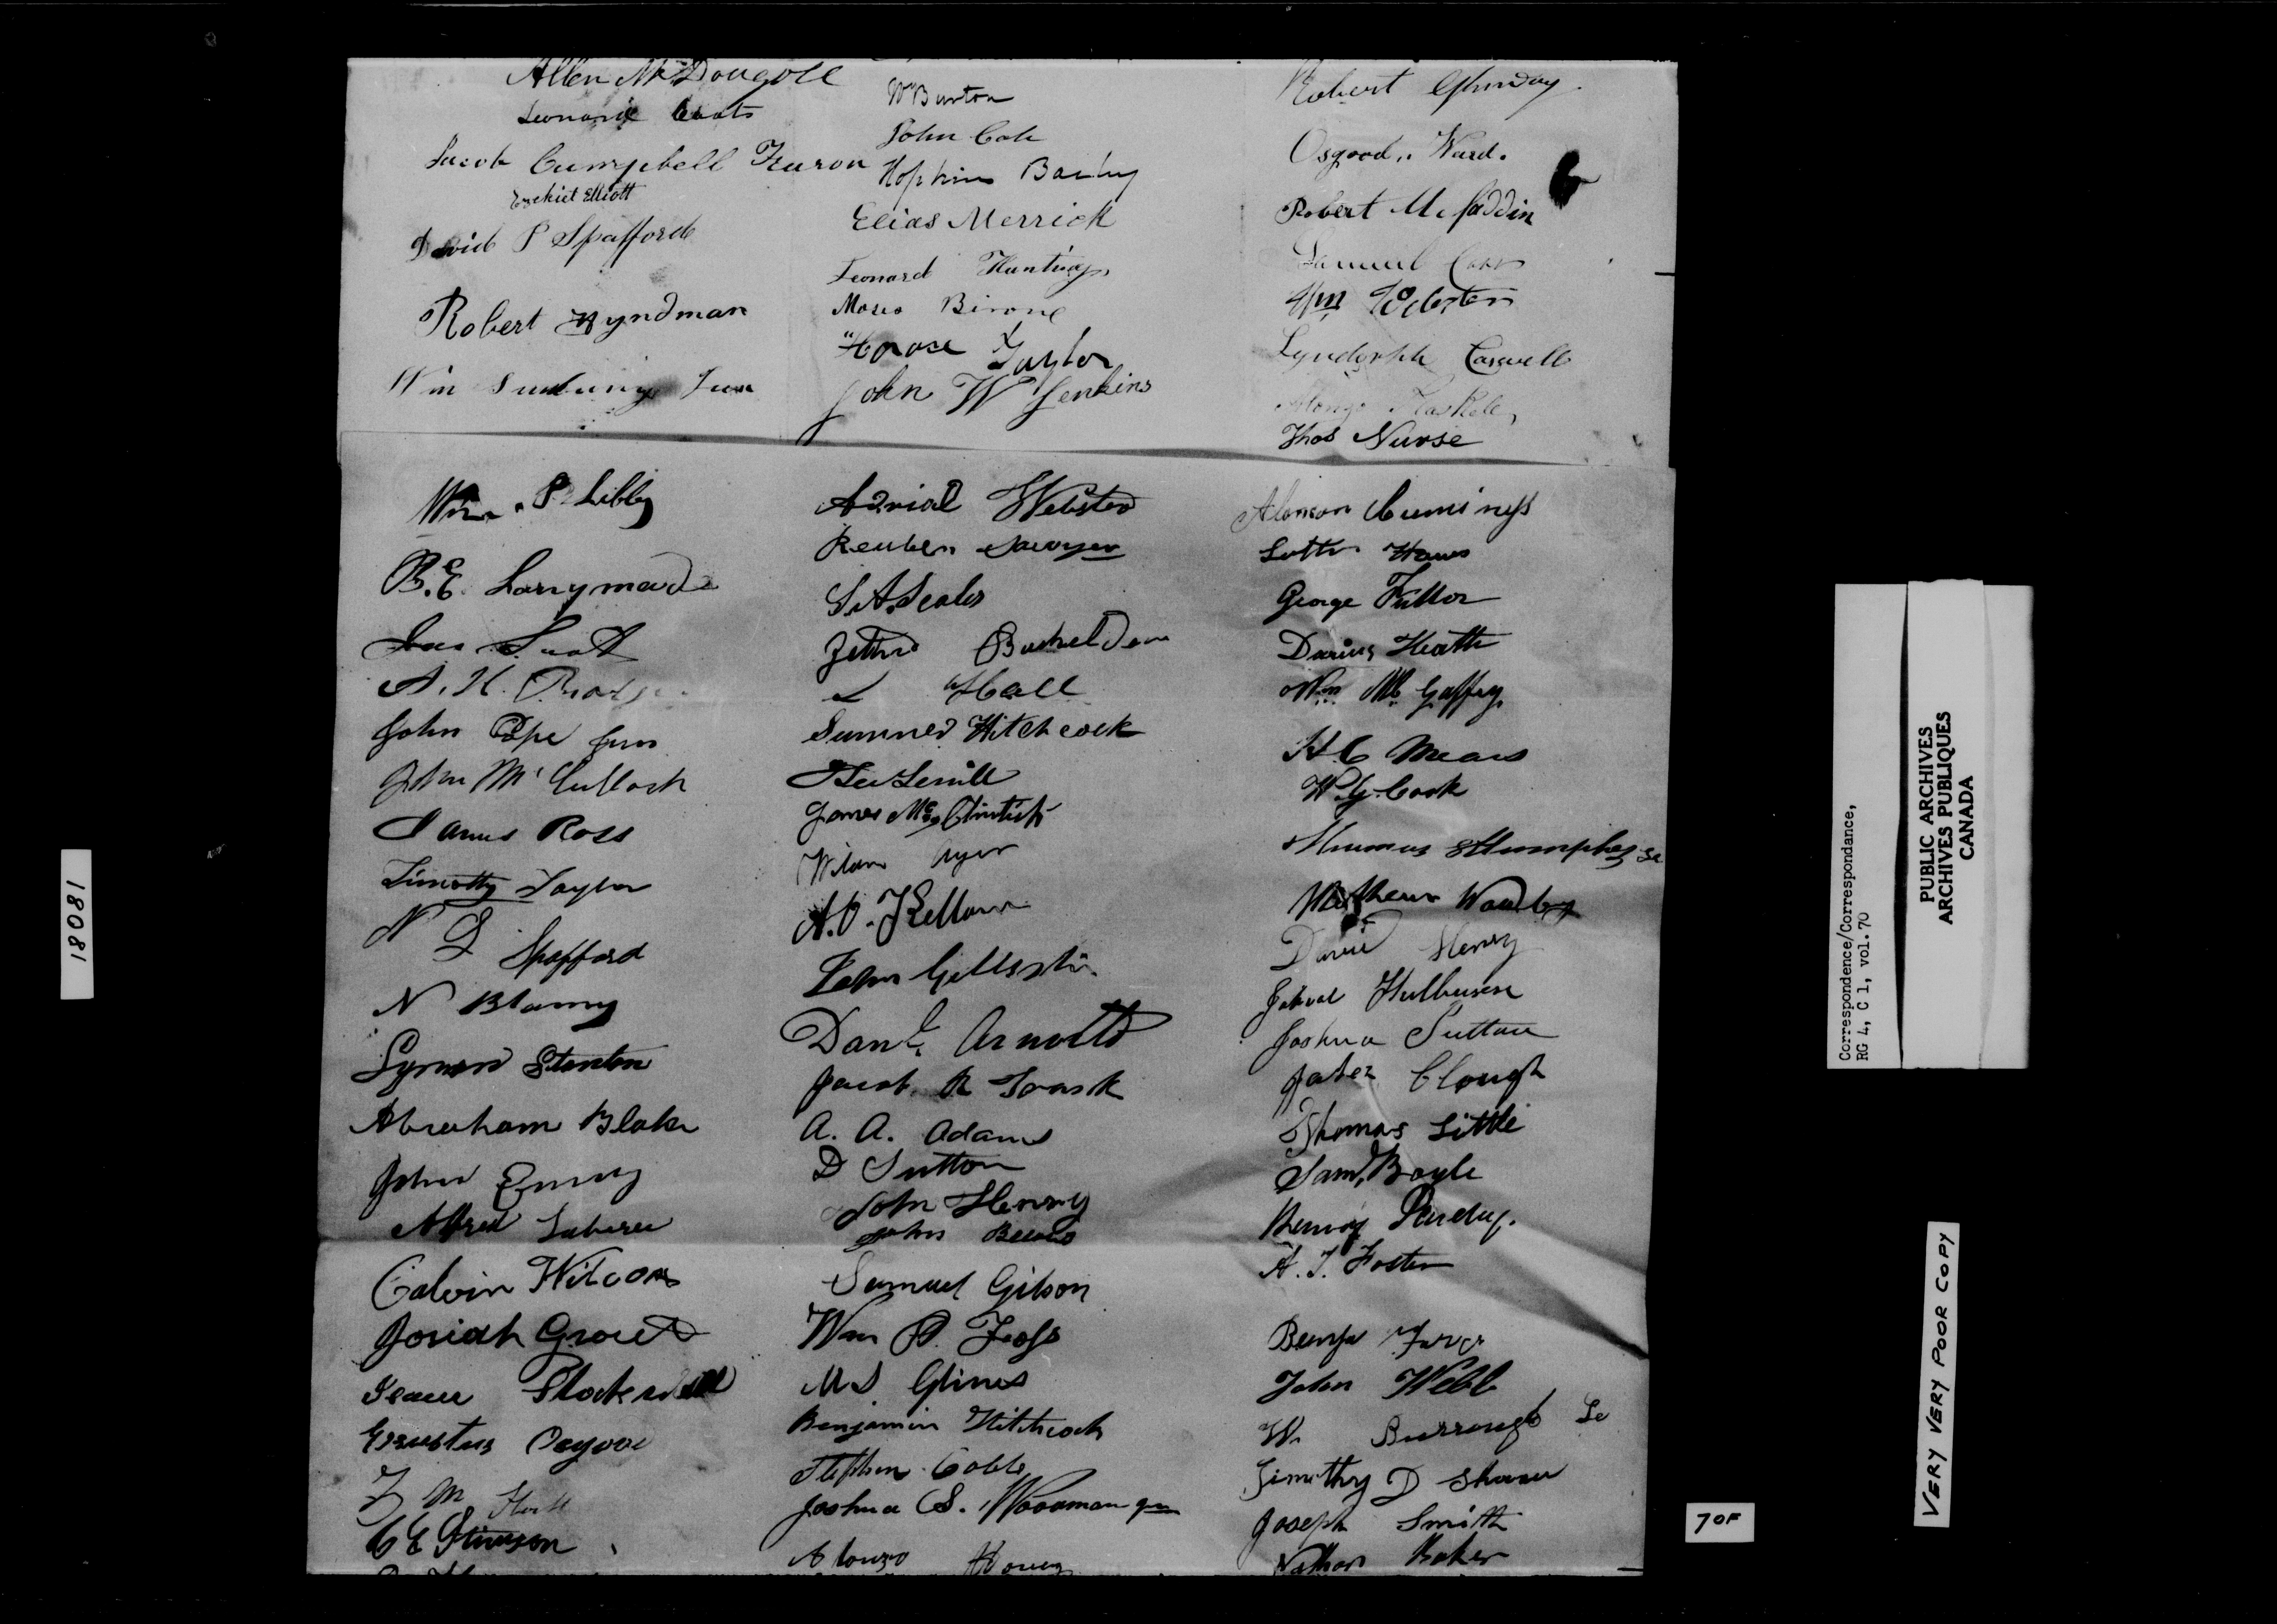 Allen McDougall
Leonard Coats
Jacob Cumpbell Huron
Ezekiel Elliott
David P Spafford
Robert Hyndman
Wm Jun
Wm Burton
John Cole
Hopkins Bailey
Elias Merrick
Leonard Huntings
Moses
Horace Taylor
John W Jenkins
Robert
Osgood Ward.
Robert McFaddin
Samuel Carr
Wm Webster
Carswell
Alonzo
Thos Nurse
Wm. P Libby
B. E. Larrymade
Scott
A. H.
John Pope Jun
John McCulloch
James Ross
Timothy Taylor
N D Spafford
N Blamy
Lyman Stanton
Abraham Blake
John Emery
Alfred
Calvin Wilcox
Josiah Grout
Isaac Stockwell
Erastus Osgood
M
C E Stimson
Adrial Webster
Reuben Sawyer
S. A. Scales
Jethro Bachelder
L Hall
Sumner Hitchcock
James Mc
Ayer
A. O. Kellam
John Gillespie
Danl. Arnold
Jacob R Trask
A. A. Adams
D Sutton
John Henry
John
Samuel Gibson
Wm P. Foss
M S Glines
Benjamin Hitchcock
Stephen Cobb
Joshua S. Woodman Jun
Alonzo Hovey
Alanson Cumings
Luther Hawes
George Fuller
Darius Heath
Wm McGaffey
H C Mears
W. G. Cook
Thomas Humphrey Se
Mathew
David Henry
Hulburen
Joshua Sutton
Jabez Clough
Thomas Little
Saml Boyle
Henry Purdy.
A. J. Foster
John Webb
W. Burrough Se
Timothy D Shaw
Joseph Smith
Nathan Baker
18081
Correspondence/Correspondance,
RG 4, C 1, vol. 70
PUBLIC ARCHIVES
ARCHIVES PUBLIQUES
CANADA
VERY VERY POOR COPY
7 OF